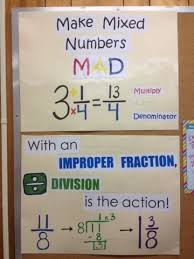 Make Mixed
Numbers
MAD
3 1/4 = 13/4
+
x
Multiply
Denominator
With an
IMPROPER FRACTION,
÷ DIVISION
is the action!
11/8 → 8)11 → 1 3/8
-8
3